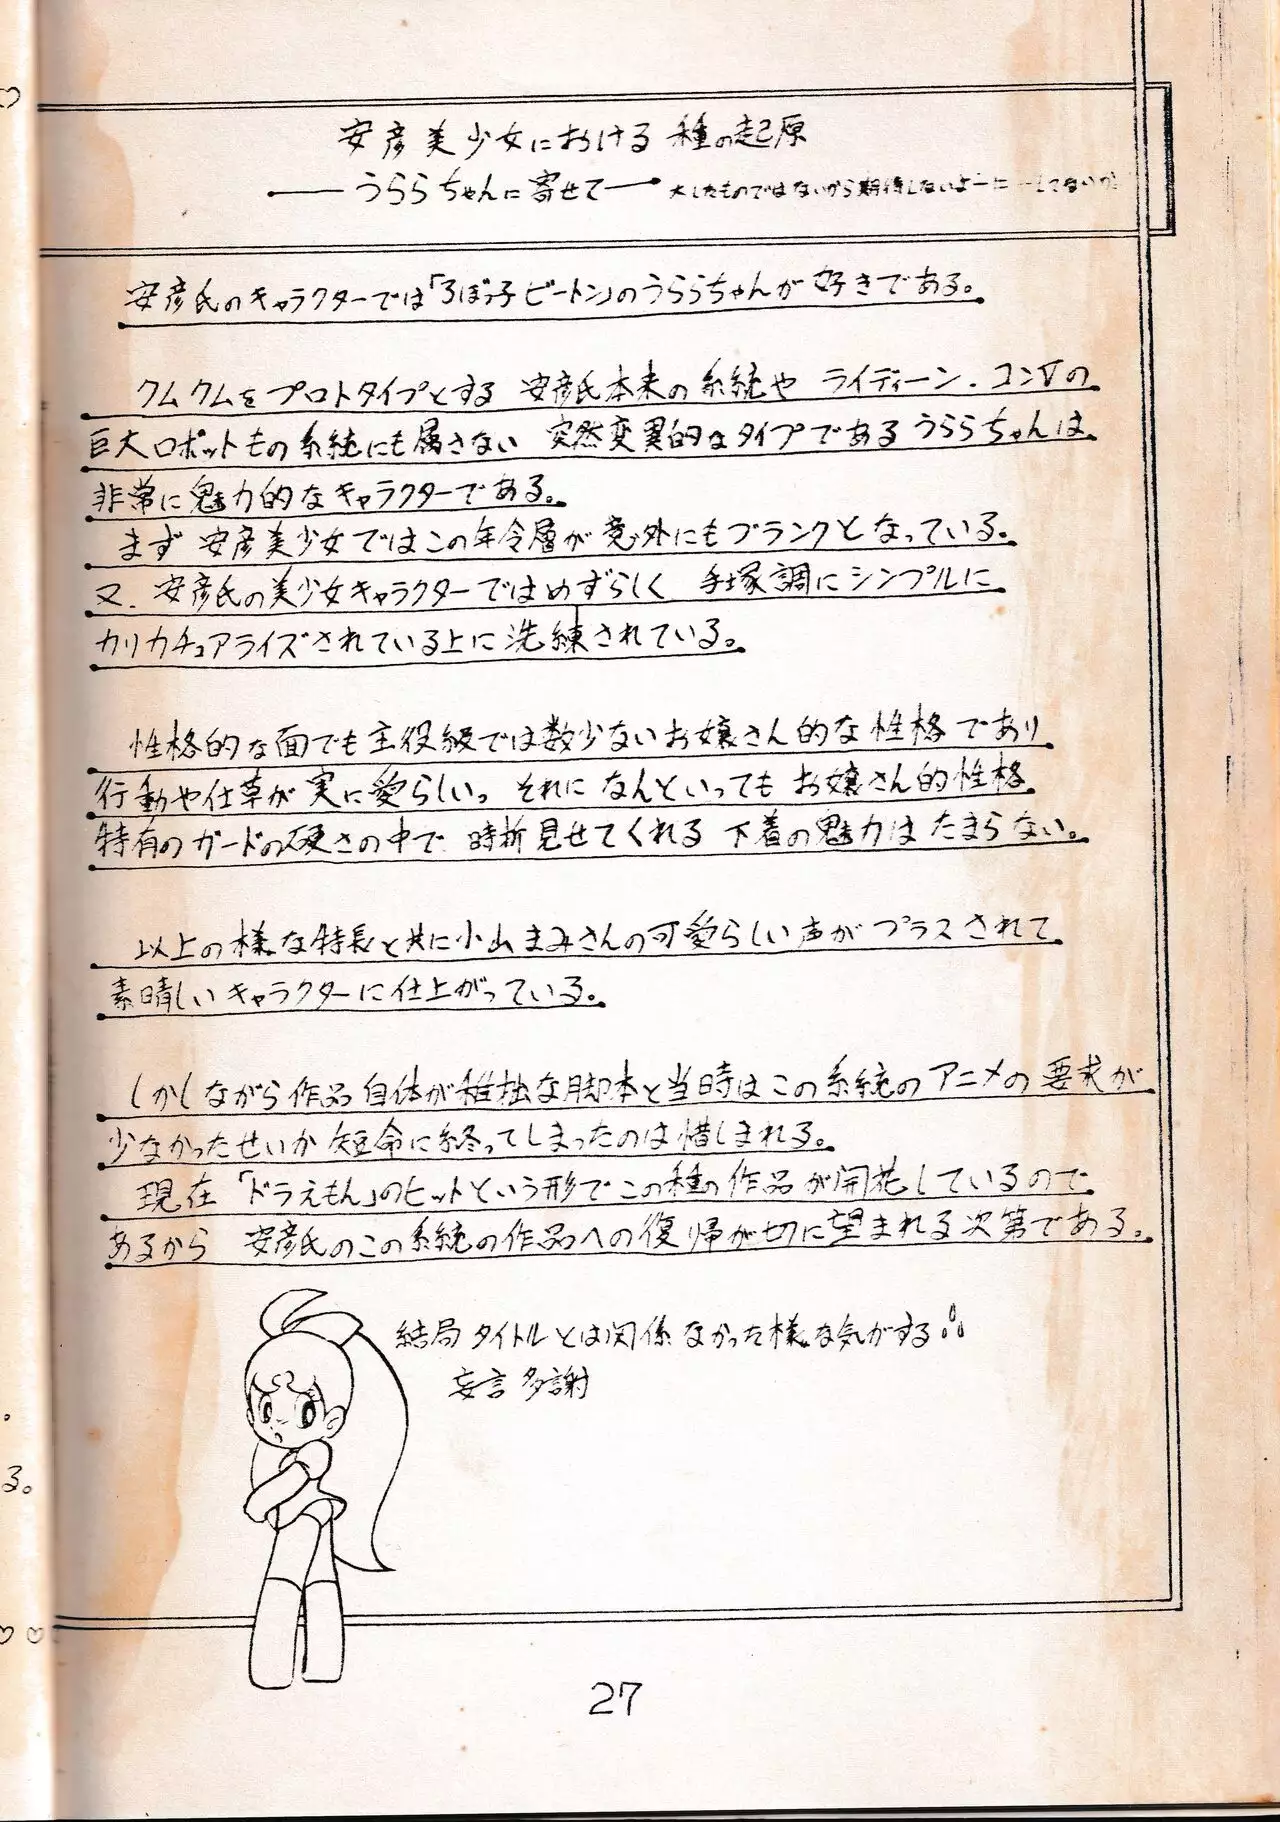 安彦美少女における種の起原
うららちゃんに寄せて 大したものではないから期待しないよーに
安彦氏のキャラクターでは「ろぼっ子ビートン」のうららちゃんが好きである。
クムクムをプロトタイプとする安彦氏本来の系統や ライディーン、コンVの
巨大ロボットもの系統にも属さない 突然変異的なタイプであるうららちゃんは、
非常に魅力的なキャラクターである。
まず 安彦美少女ではこの年令層が意外にもブランクとなっている。
又、安彦氏の美少女キャラクターではめずらしく 手塚調にシンプルに
カリカチュアライズされている上に洗練されている。
性格的な面でも主役級では数少ないお嬢さん的な性格であり
行動や仕草が実に愛らしい。それになんといってもお嬢さん的性格
特有のガードの硬さの中で 時折見せてくれる下着の魅力はたまらない。
以上の様な特長と共に小山まみさんの可愛らしい声がプラスされて
素晴しいキャラクターに仕上がっている。
しかしながら作品自体が稚拙な脚本と当時はこの系統のアニメの要求が
少なかったせいか短命に終ってしまったのは惜しまれる。
現在「ドラえもん」のヒットという形でこの種の作品が開花しているので
あるから 安彦氏のこの系統の作品への復帰が切に望まれる次第である。
結局タイトルとは関係なかった様な気がする
妄言多謝
る。
27